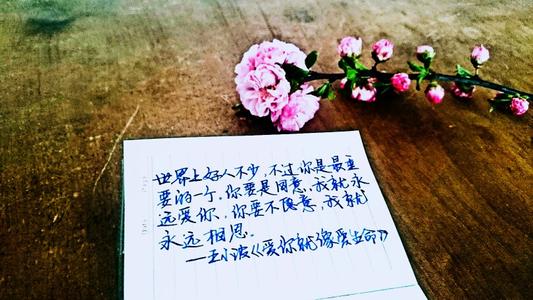 世界上好人不少，不过你是最重
要的一个。你要是同意，我就永
远爱你，你要不愿意，我就
永远相思。
——王小波《爱你就像爱生命》